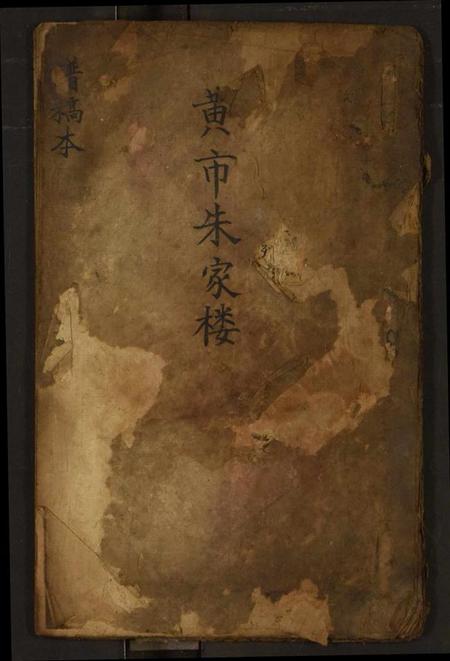 黄市朱家楼
谱稿本